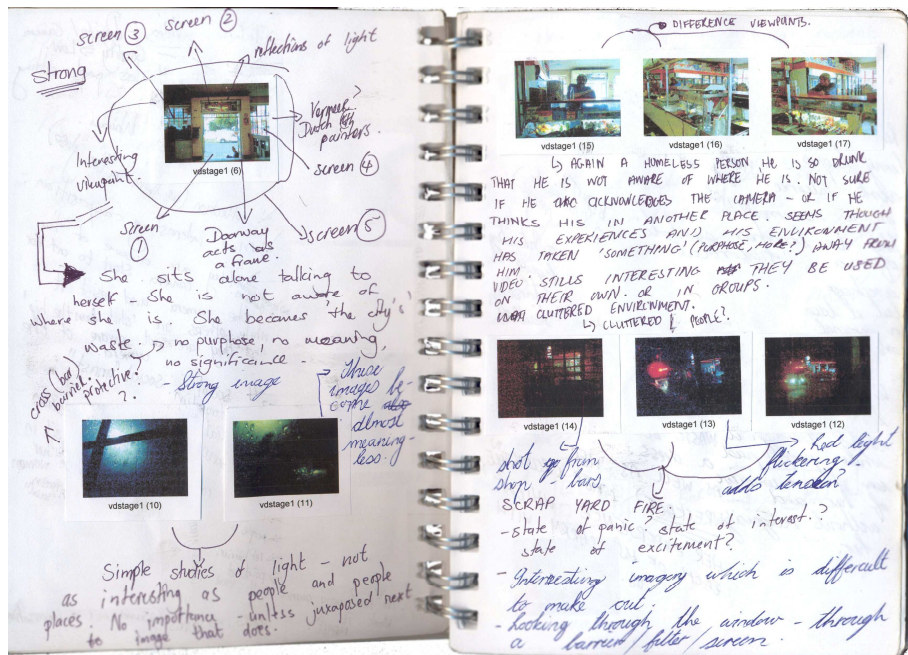 screen ③
screen ②
reflections of light
Strong
Vermeer?
Dutch
painters.
vdstage1 (6)
Interesting
viewpoint.
screen ④
Screen
①
Doorway
acts as
a frame.
screen ⑤
She sits alone talking to
herself - She is not aware of
where she is. She becomes the city's
waste. no purphose, no meaning,
no significance.
cross (bar)
barrier.
protective?
?
- Strong image
These
images be-
come
almost
meaning-
less.
vdstage1 (10)
vdstage1 (11)
Simple studies of light - not
as interesting as people and people
places. No importance - unless juxaposed next
to image that does.
DIFFERENCE VIEWPOINTS.
vdstage1 (15)
vdstage1 (16)
vdstage1 (17)
AGAIN A HOMELESS PERSON HE IS SO DRUNK
THAT HE IS NOT AWARE OF WHERE HE IS. NOT SURE
IF HE ACKNOWLEDGES THE CAMERA - OR IF HE
THINKS HIS IN ANOTHER PLACE. SEEMS THOUGH
HIS EXPERIENCES AND HIS ENVIRONMENT
HAS TAKEN 'SOMETHING' (PURPHOSE, HOPE?) AWAY FROM
HIM.
VIDEO STILLS INTERESTING THEY BE USED
ON THEIR OWN. OR IN GROUPS.
CLUTTERED ENVIRONMENT.
CLUTTERED PEOPLE?
vdstage1 (14)
vdstage1 (13)
vdstage1 (12)
shot from
shop - bars
Red light
flickering -
adds tension
SCRAP YARD FIRE.
- state of panic? state of interest?
state of excitement?
- Interesting imagery which is difficult
to make out.
- Looking through the window - through
a barrier / filter / screen.